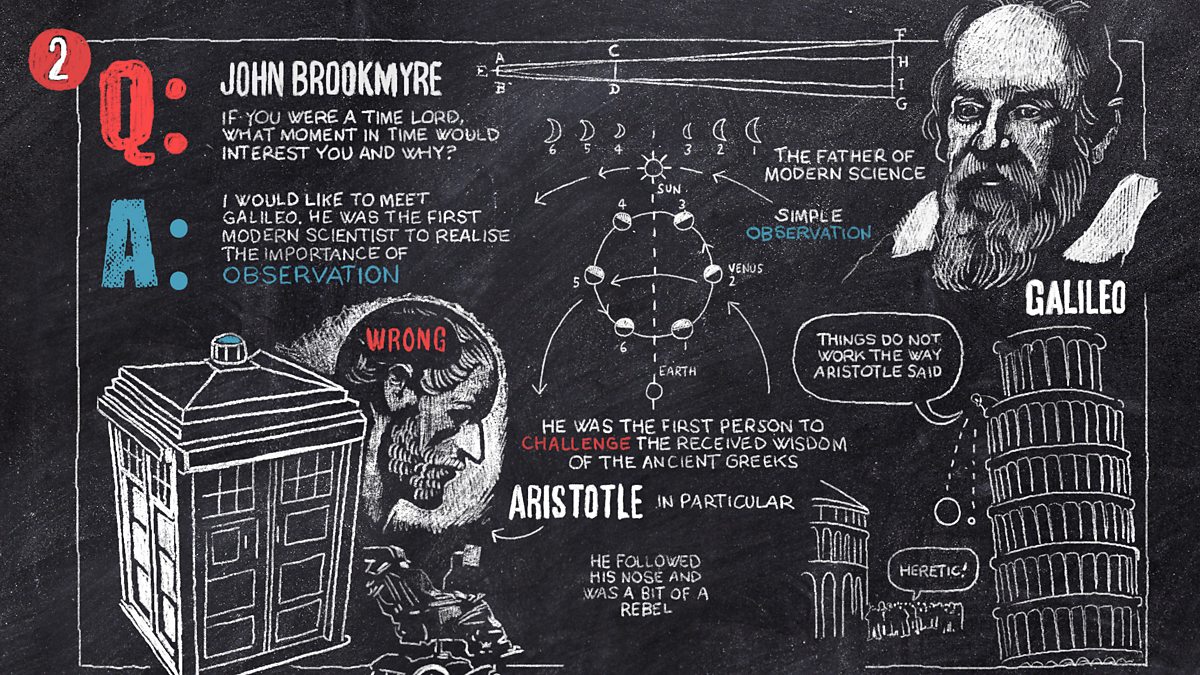 2
Q:
JOHN BROOKMYRE
IF YOU WERE A TIME LORD,
WHAT MOMENT IN TIME WOULD
INTEREST YOU AND WHY?
A:
I WOULD LIKE TO MEET
GALILEO. HE WAS THE FIRST
MODERN SCIENTIST TO REALISE
THE IMPORTANCE OF
OBSERVATION
E
A
B
C
D
F
H
I
G
6 5 4 3 2 1
SUN
4 3
5
VENUS
2
6 1
EARTH
THE FATHER OF
MODERN SCIENCE
SIMPLE
OBSERVATION
GALILEO
WRONG
THINGS DO NOT
WORK THE WAY
ARISTOTLE SAID
HE WAS THE FIRST PERSON TO
CHALLENGE THE RECEIVED WISDOM
OF THE ANCIENT GREEKS
ARISTOTLE IN PARTICULAR
HE FOLLOWED
HIS NOSE AND
WAS A BIT OF A
REBEL
HERETIC!